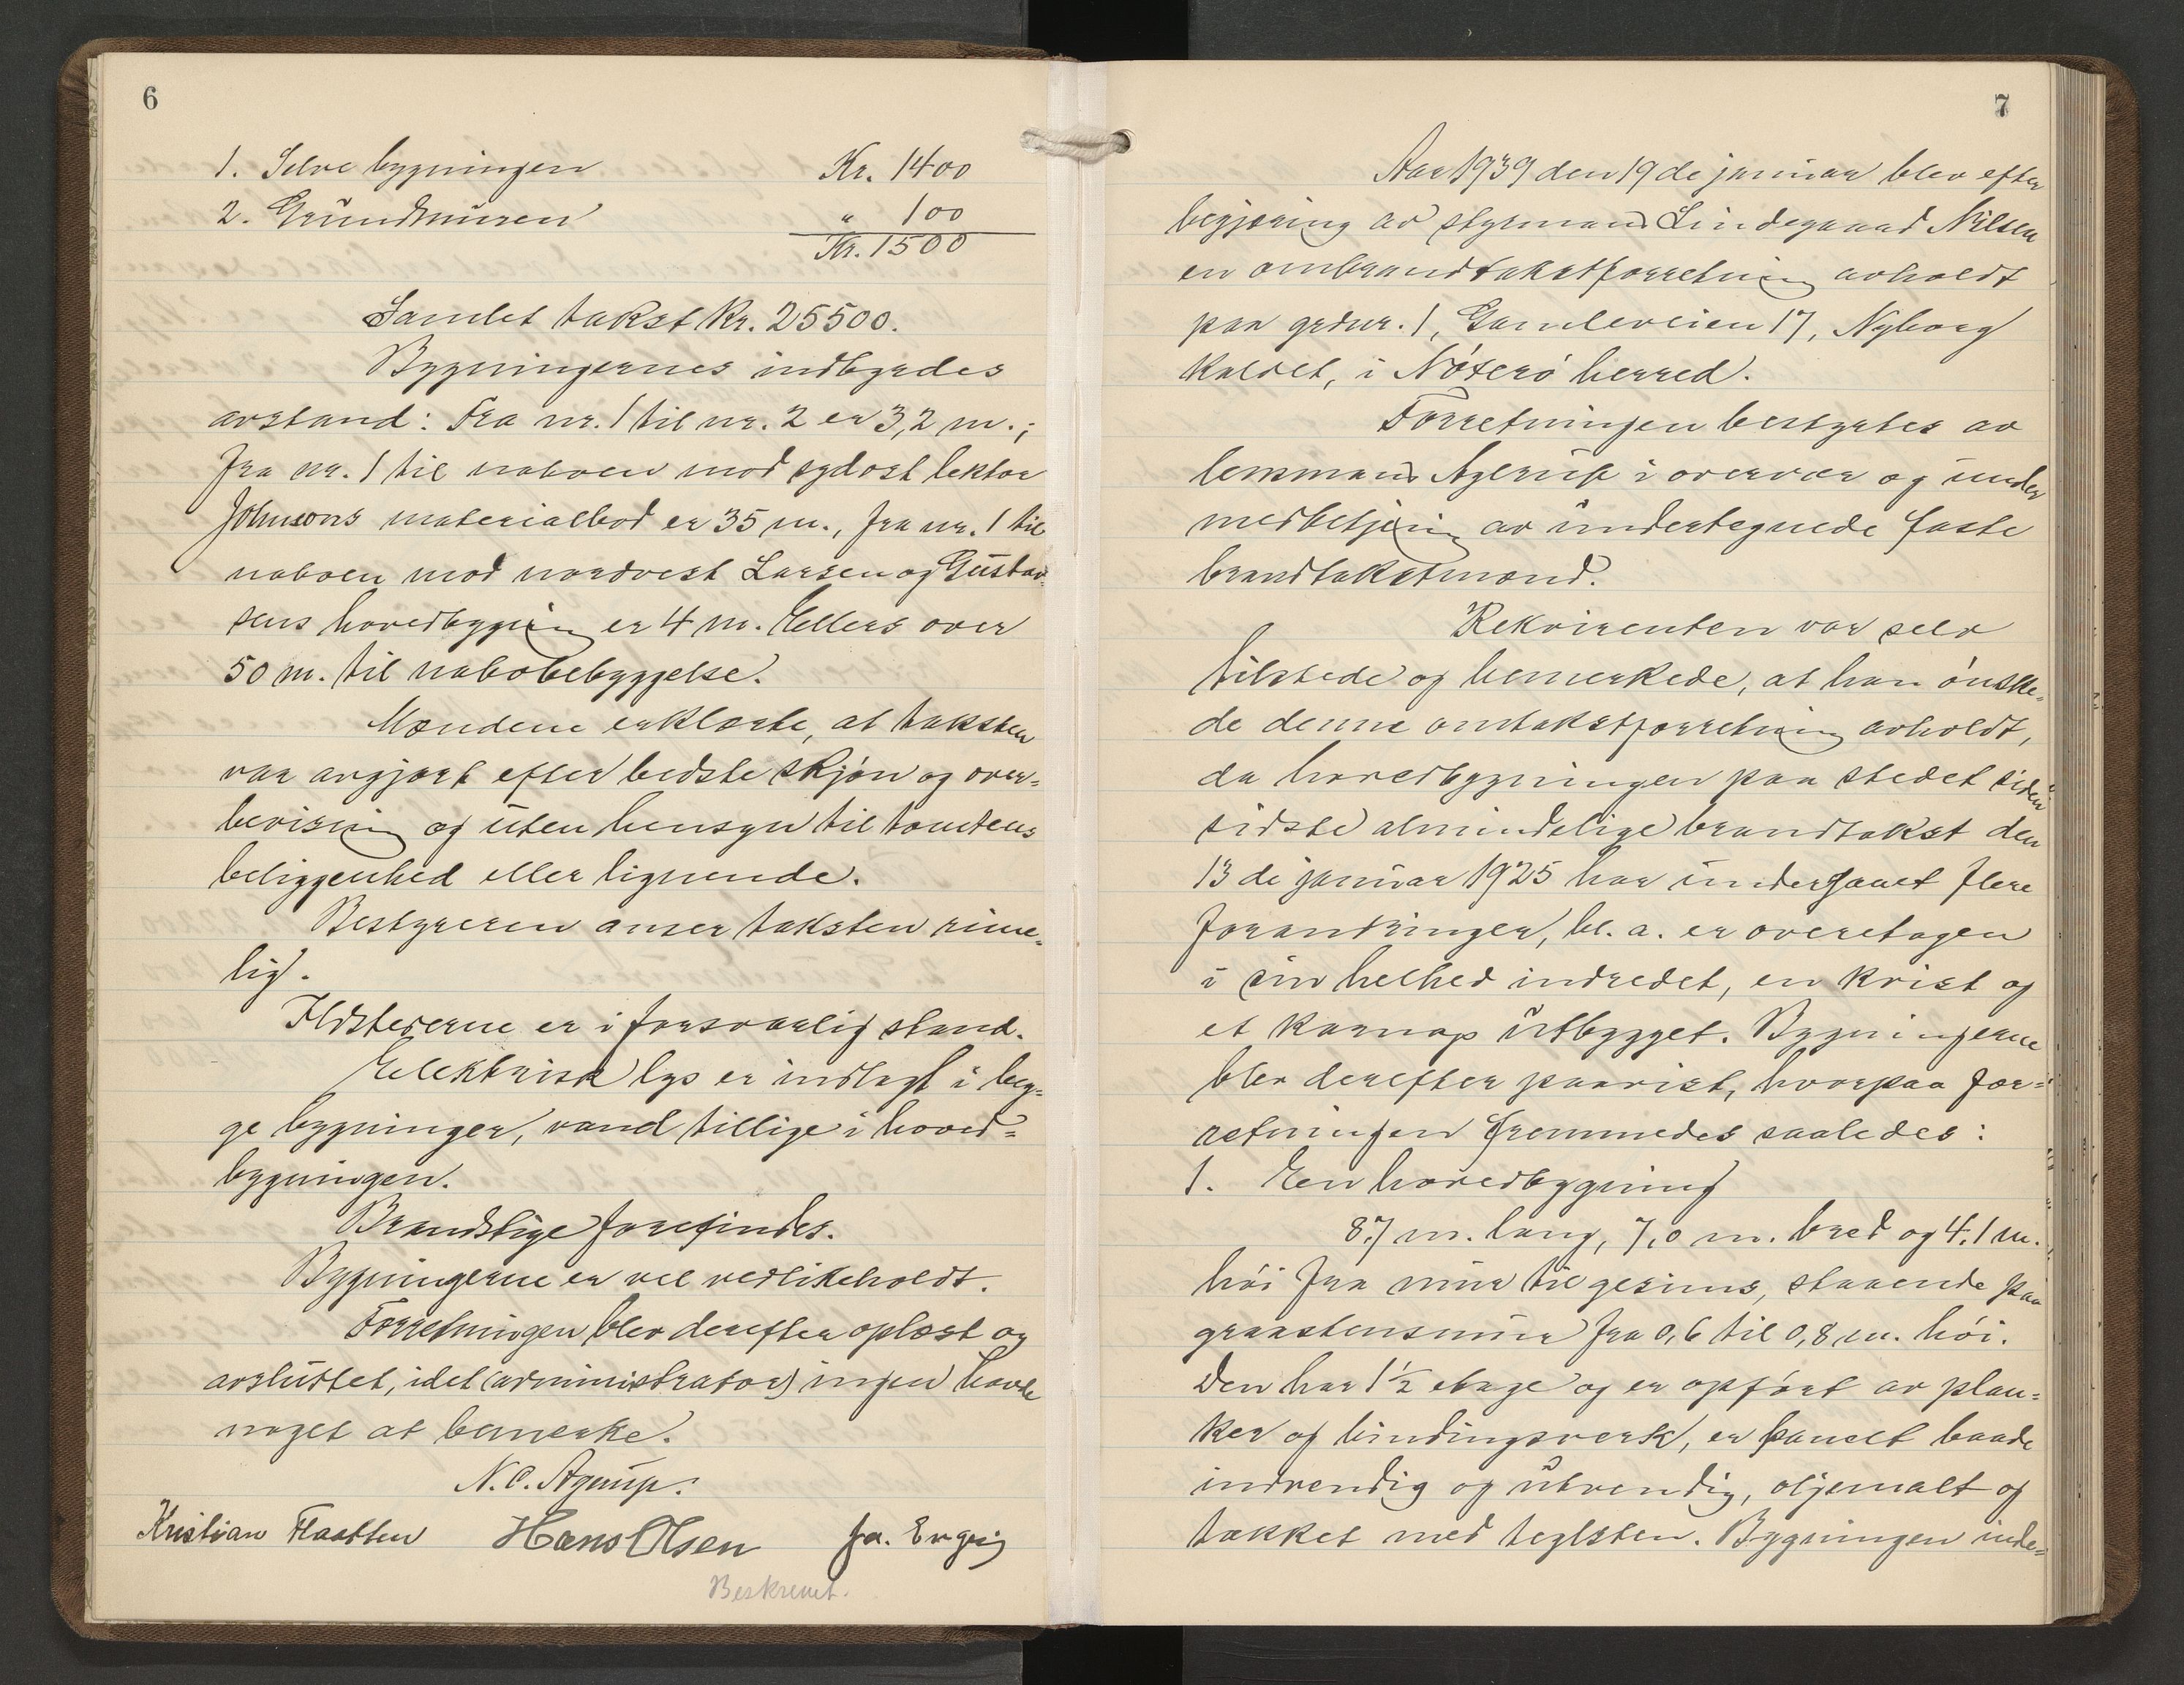 6
1. Selve bygningen Kr. 1400
2. Grundmuren " 100
Kr. 1500
Samlet takst kr. 25500.
Bygningernes indbyrdes
avstand: Fra nr. 1 til nr. 2 er 3,2 m.;
fra nr. 1 til naboen mod sydost lektor
Johnsons materialbod er 35 m., fra nr. 1 til
naboen mod nordvest Larsen og Gustav-
sens hovedbygning er 4 m. Ellers over
50 m. til nabobebyggelse.
Mændene erklærte, at taksten
var avgjort efter bedste skjøn og over-
bevisning og uten hensyn til tomtens
beliggenhed eller lignende.
Bestyreren anser taksten rime-
lig.
Ildstederne er i forsvarlig stand.
Elektrisk lys er indlagt i beg-
ge bygninger, vand tillige i hoved-
bygningen.
Brandstige forefindes.
Bygningerne er vel vedlikeholdt.
Forretningen blev derefter oplæst og
avsluttet, idet (administrator) ingen havde
noget at bemerke.
N. C. Agerup.
Kristian Flaatten Hans Olsen Ja. Engvig
Beskrevet.
7
Aar 1939 den 19de januar blev efter
begjæring av styrmand Lindegaard Nilsen
en ombrandtakstforretning avholdt
paa grdnr. 1, Gamleveien 17, Nyborg
kaldet, i Nøterø herred.
Forretningen bestyrtes av
lensmand Agerup i overvær og under
medbetjening av undertegnede faste
brandtakstmænd.
Rekvirenten var selv
tilstede og bemerkede, at han ønske-
de denne omtakstforretning avholdt,
da hovedbygningen paa stedet siden
sidste almindelige brandtakst den
13de januar 1925 har undergaaet flere
forandringer, bl. a. er overetagen
i sin helhed indredet, en kvist og
et karnap utbygget. Bygningerne
blev derefter paavist, hvorpaa for-
retningen fremmedes saaledes:
1. En hovedbygning
8,7 m. lang, 7,0 m. bred og 4,1 m.
høi fra mur til gesims, staaende paa
graastensmur fra 0,6 til 0,8 m. høi.
Den har 1½ etage og er opført av plan-
ker og bindingsverk, er panelt baade
indvendig og utvendig, oljemalt og
tækket med teglsten. Bygningen inde-